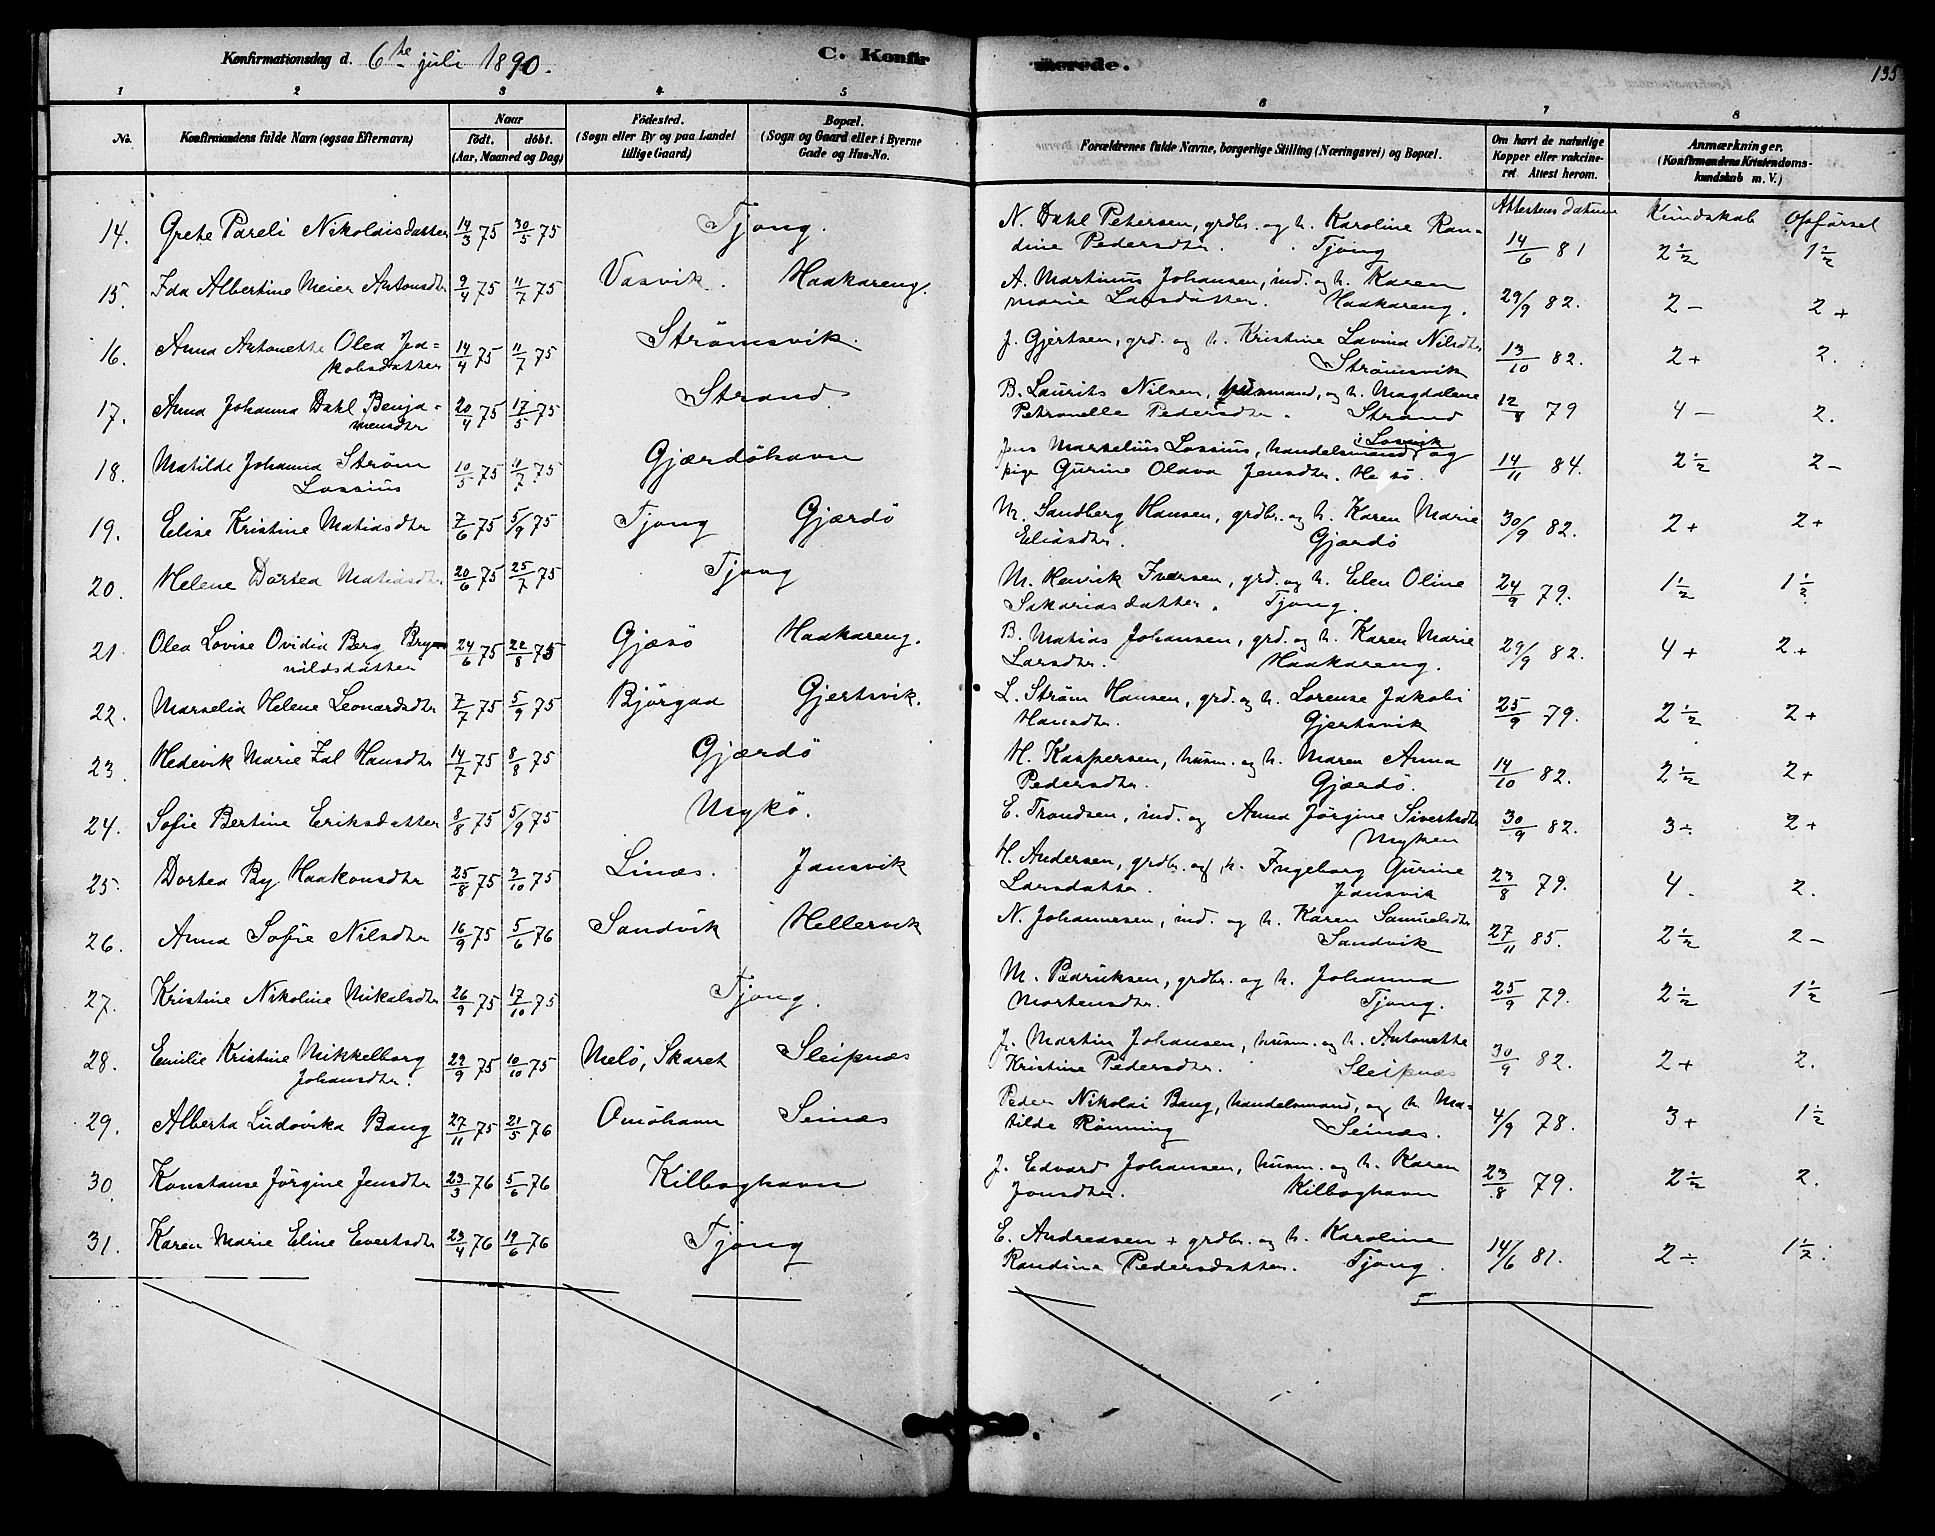 Konfirmationsdag d. 6te juli 1890.
C. Konfirmerede.
135
1 2 3 4 5 6 7 8
No.
Konfirmandens fulde Navn (ogsaa Efternavn)
Naar
födt. döbt.
(Aar, Maaned og Dag)
Födested.
(Sogn eller By og paa Landet
tillige Gaard)
Bopæl.
(Sogn og Gaard eller i Byerne
Gade og Hus-No.
Forældrenes fulde Navne, borgerlige Stilling (Næringsvei) og Bopæl.
Om havt de naturlige
Kopper eller vakcine-
ret Attest herom.
Anmærkninger.
(Konfirmandens Kristendoms-
kundskab m. V.)
Attestens datum Kundskab Opförsel
14. Grete Pareli Nikolaisdatter 14/3 75 30/5 75 Tjong. N. Dahl Petersen, grdbr. og h. Karoline Ran-
dine Pedersdtr. Tjong 14/6 81 2 1/2 1 1/2
15. Ida Albertine Meier Antonsdtr 9/4 75 11/7 75 Vasvik. Haakareng. A. Martinus Johansen, ind. og h. Karen
Marie Larsdatter. Haakareng. 29/9 82. 2 - 2 +
16. Anna Antonette Olea Ja-
kobsdatter 14/4 75 11/7 75 Strömsvik. J. Gjertsen, grd. og h. Kristine Lavina Nilsdtr
Strömsvik 13/10 82. 2 + 2.
17. Anna Johanna Dahl Benja-
mensdtr 20/4 75 17/5 75 Strand. B. Laurits Nilsen, husmand, og h. Magdalene
Petronelle Pedersdtr. Strand 12/8 79 4 - 2.
18. Matilde Johanna Ström
Lossius 10/5 75 11/7 75 Gjærdöhavn Jens Marselius Lossius, handelsmand i Lovvik og
pige Gurine Olava Jensdtr. 14/11 84. 2 1/2 2 -
19. Elise Kristine Matiasdtr 7/6 75 5/9 75 Tjong Gjærdö M. Sandberg Hansen, grdbr. og h. Karen Marie
Eliasdtr. Gjærdö 30/9 82. 2 + 2 +
20. Helene Dortea Matiasdtr 20/6 75 25/7 75 Tjong M. Henrik Iversen, grd. og h. Elen Oline
Sakariasdatter. Tjong. 24/9 79. 1 1/2 1 1/2
21. Olea Lovise Ovidia Berg Bryn-
nildsdatter 24/6 75 22/8 75 Gjæsö Haakareng. B. Matias Johansen, grd. og h. Karen Marie
Larsdtr. Haakareng. 29/9 82. 4 + 2 +
22. Marselia Helene Leonardsdtr 7/7 75 5/9 75 Bjørgaa Gjertsvik. L. Ström Hansen, grd. og h. Lorense Jakobi
Hansdtr. Gjertsvik 25/9 79. 2 1/2 2 +
23. Hedevik Marie Zal Hansdtr 14/7 75 8/8 75 Gjærdö H. Kaspersen, husm. og h. Maren Anna
Pedersdtr. Gjærdö. 14/10 82. 2 1/2 2 +
24. Sofie Bertine Eriksdatter 8/8 75 5/9 75 Mykö. E. Trondsen, ind. og Anna Jörgine Sivertsdtr
Myken 30/9 82. 3 ÷ 2 +
25. Dortea By Haakonsdtr 25/8 75 3/10 75 Linæs. Jansvik H. Andersen, grdbr. og h. Ingeborg Gurine
Larsdatter. Jansvik 23/8 79. 4 - 2.
26. Anna Sofie Nilsdtr 16/9 75 5/6 76 Sandvik Hellervik N. Johannesen, ind. og h. Karen Samuelsdtr
Sandvik 27/11 85. 2 1/2 2 -
27. Kristine Nikoline Mikalsdtr 26/9 75 17/10 75 Tjong. M. Pedriksen, grdbr. og h. Johanna
Mortensdtr. Tjong. 25/9 79. 2 1/2 1 1/2
28. Emilie Kristine Mikkelborg
Johansdtr. 29/9 75 10/10 75 Melö, Skaret Sleipnæs J. Martin Johansen, husm. og h. Antonette
Kristine Pedersdtr. Sleipnæs 30/9 82. 2 + 2.
29. Alberta Ludovika Bang 27/11 75 21/5 76 Omöhavn Seinæs Peder Nikolai Bang, handelsmand, og h. Ma-
tilde Rönning Seinæs. 4/9 78. 3 + 1 1/2
30. Konstanse Jörgine Jensdtr 23/3 76 5/6 76 Kilboghavn J. Edvard Johansen, husm. og h. Karen
Jonsdtr. Kilboghavn 23/8 79. 2 1/2 2.
31. Karen Marie Eline Evertsdtr 23/4 76 19/6 76 Tjong E. Andreasen + grdbr. og h. Karoline
Randine Pedersdatter. Tjong. 14/6 81. 2 ÷ 1 1/2